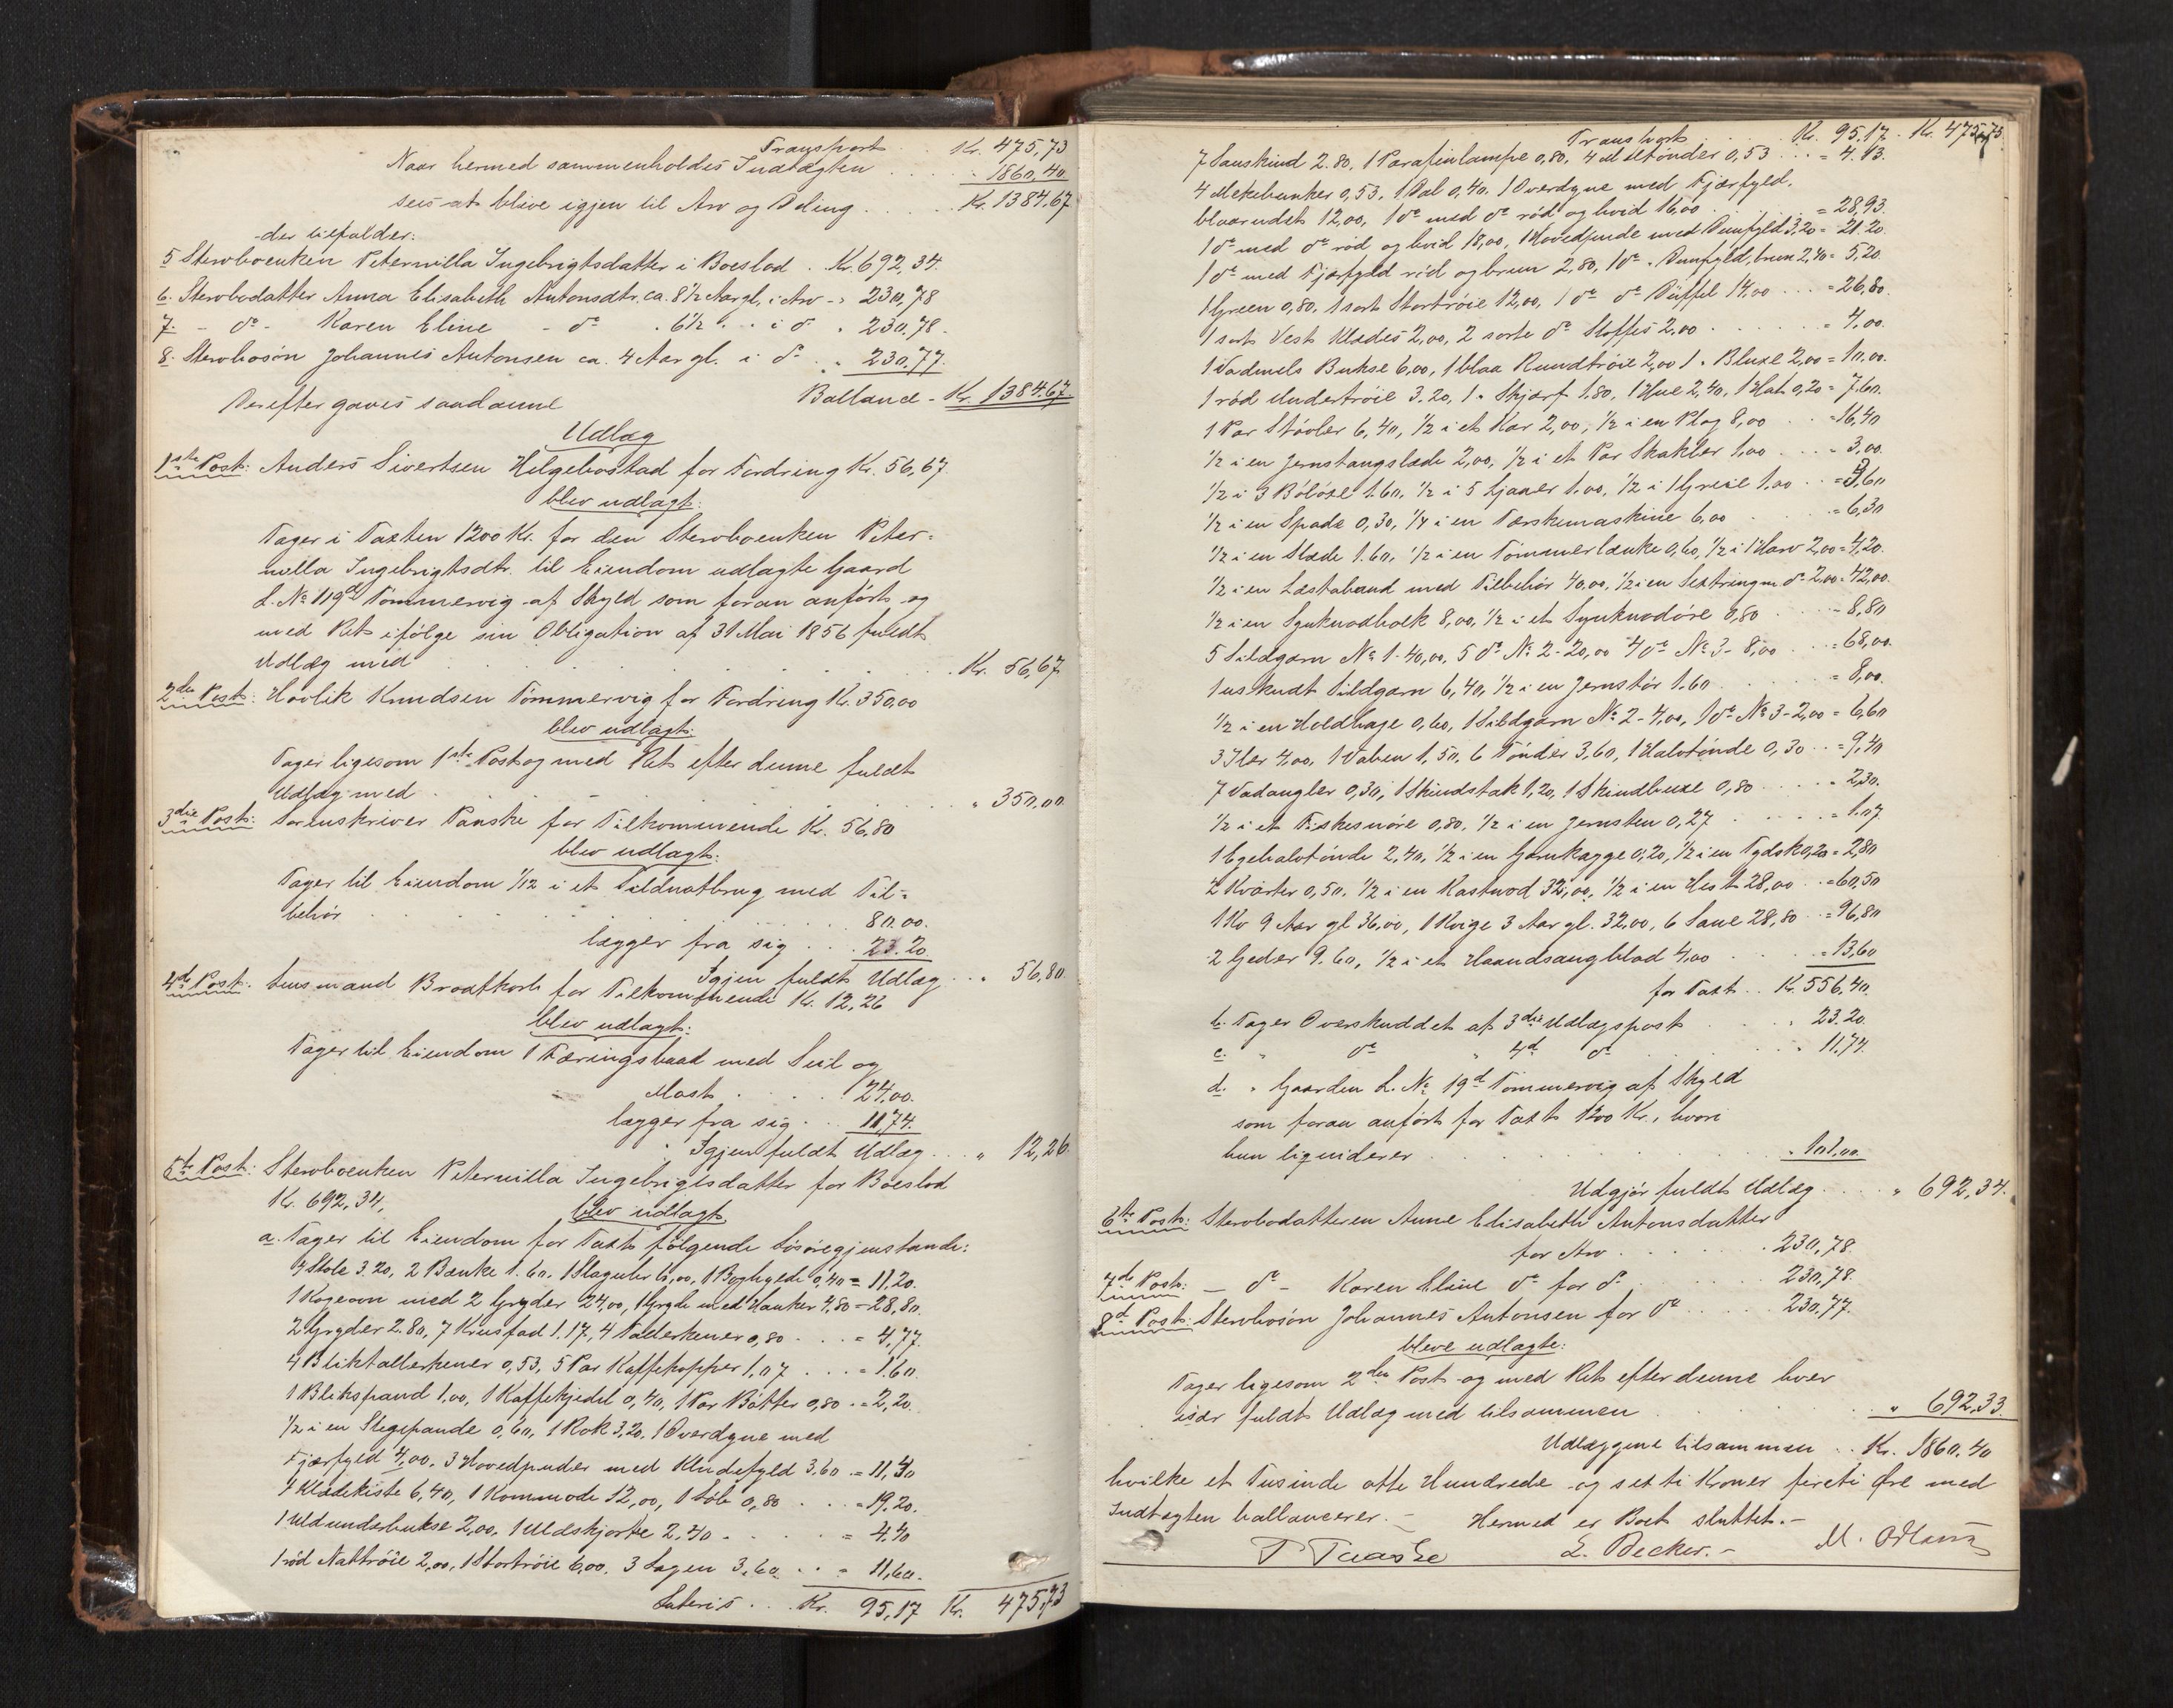 Transport . . Kr. 475,73
Naar hermed sammenholdes Indtægten . . . . . 1860,40
sees at blive igjen til Arv og Deling . . . . . Kr. 1384.67
der tilfalder:
5 Stervboenken Peternilla Ingebrigtsdatter i Boeslod . Kr. 692,34.
6. Stervbodatter Anna Elisabeth Antonsdtr. ca. 8½ Aar gl. i Arv - " 230,78
7. - do - Karen Eline - do . 6½ . . i do " 230,78.
8. Stervbosøn Johannes Antonsen ca. 4 Aar gl. i do . " 230,77.
Ballance - Kr. 1384.67.
Derefter gaves saadanne
Udlæg
1ste Post: Anders Sivertsen Helgebostad for Fordring Kr. 56,67.
blev udlagt:
Tager i Taxten 1200 Kr. for den Stervboenken Peter-
nilla Ingebrigtsdtr. til Eiendom udlagte Gaard
L. No 119d Tømmervig af Skyld som foran anført og
med Ret ifølge sin Obligation af 31 Mai 1856 fuldt
Udlæg med . . . . . . . . Kr. 56,67
2den Post: Hovlik Knudsen Tømmervig for Fordring Kr. 350,00
blev udlagt:
Tager ligesom 1ste Post og med Ret efter denne fuldt
Udlæg med . . . . . . . . " 350,00
3die Post: Sorenskriver Taaske for Tilkommende Kr. 56,80
blev udlagt:
Tager til Eiendom 1/12 i et Sildnotbrug med Til-
behør . . . . . . 80.00.
lægger fra sig . . . 23.20
Igjen fuldt Udlæg . . " 56,80.
4de Post. Lensmand Brodtkorb for Tilkommende Kr. 12,26
blev udlagt:
Tager til Eiendom 1 Færingsbaad med Seil og
Mast . . . . . 24,00.
lægger fra sig . . . 11,74.
Igjen fuldt Udlæg . . . " 12,26.
5te Post: Stervboenken Peternilla Ingebrigtsdatter for Boeslod
Kr. 692,34. blev udlagt
a. Tager til Eiendom for Taxt følgende Løsøregjenstande:
4 Stole 3.20, 2 Bænke 1.60, 1 Slaguhr 6,00, 1 Boghylde 0,40 = 11,20.
1 Kogeovn med 2 Gryder 24,00, 1 Gryde med Hanker 4,80 = 28,80.
2 Gryder 2.80, 7 Krusfad 1.17, 4 Tallerkener 0,80 . . . = 4,77.
4 Bliktallerkener 0,53, 5 Par Kaffekopper 1,07 . . . = 1.60.
1 Blikspand 1,00, 1 Kaffekjedel 0,40, 1 Par Bøtter 0,80 . = 2,20.
½ i en Stegepande 0,60, 1 Rok 3,20, 1 Overdyne med
Fjærfyld 4,00, 3 Hovedpuder med Uldfyld 3,60 . = 11,40
1 Klædekiste 6,40, 1 Kommode 12,00, 1 Løb 0,80 . . . = 19.20.
1 Uldunderbukse 2,00, 1 Uldskjorte 2,40 . . . . . = 4.40
1 rød Nattrøie 2,00, 1 Stortrøie 6,00, 3 Lagen 3,60 . . = 11,60.
Lateris . . Kr. 95,17 Kr. 475,73
Transport . . . . Kr. 95,17 . Kr. 475,73.
7 Saueskind 2.80, 1 Parafinlampe 0,80, 4 Meltønder 0,53 . . . = 4.13.
4 Melkebunker 0,53, 1 Dal 0,40, 1 Overdyne med Fjærfyld,
blaarudet 12,00, 1 do med do rød og hvid 16,00 . . . = 28,93.
1 do med do rød og hvid 18,00, 1 Hovedpude med Dunfyld 3,20 = 21.20.
1 do med Fjærfyld rød og brun 2,80, 1 do " Dunfyld, brun 2,40 = 5,20.
1 Green 0,80, 1 sort Stortrøie 12,00, 1 do do Düffel 14,00 . . . = 26,80.
1 sort Vest Klædes 2,00, 2 sorte do Stoffes 2,00 . . . . . = 4,00.
1 Vadmels Bukse 6,00, 1 blaa Rundtrøie 2,00 1 " Bluse 2,00 = 10,00.
1 rød Undertrøie 3.20, 1 " Skjærf 1,80, 1 Hue 2,40, 1 Hat 0,20 = 7,60.
1 Par Støvler 6,40, ½ i et Kar 2,00, ½ i en Plog 8,00 . . = 16,40
½ i en Jernstangslæde 2,00, ½ i et Par Skakler 1,00 . . . = 3,00.
½ i 3 Bøløxe 1.60, ½ i 5 Ljaaer 1,00, ½ i 1 Greie 1,00 . . = 3,60
½ i en Spade 0,30, ¼ i en Tærskemaskine 6,00 . . . = 6,30
½ i en Slæde 1.60, ½ i en Tømmerlænke 0,60, ½ i 1 Harv 2,00 = 4,20.
½ i en Læstabaad med Tilbehør 40,00, ½ i en Sextring m. do 2,00 = 42,00.
½ i en Synknodbælk 8,00, ½ i et Synknodøre 0,80 . . . = 8,80
5 Sildgarn No 1 - 40,00, 5 do No 2 - 20,00 4 do No 3 - 8,00 . . . = 68,00.
1 uskudt Sildgarn 6,40, ½ i en Jernstør 1.60 . . . . . = 8,00.
½ i en Holdhage 0,60, 1 Sildgarn No 2 - 4,00, 1 do No 3 - 2,00 = 6,60
3 Iler 4,00, 1 Vaben 1,50, 6 Tønder 3,60, 1 Halvtønde 0,30 . . = 9,40
7 Vadangler 0,30, 1 Skindstak 1,20, 1 Skindbuxe 0,80 . . . . = 2,30.
½ i et Fiskesnøre 0,80, ½ i en Jernsten 0,27 . . . . . = 1.07
1 Egehalvtønde 2,40, ½ i en Garnkagge 0,20, ½ i en Tydsk 0,20 = 2,80
2 Kvarter 0,50, ½ i en Kastnod 32,00, ½ i en Hest 28,00 . . = 60,50
1 Ko 9 Aar gl 36,00, 1 Kvige 3 Aar gl. 32,00, 6 Saue 28,80 . . = 96,80
2 Geder 9.60, ½ i et Haandsaugblad 4,00 . . . . = 13,60
for Taxt . . Kr. 556,40.
b. Tager Overskuddet af 3die Udlægspost . . " 23.20.
c. " do " 4de do . . . " 11.74.
d. " Gaarden L. No 19d Tømmervig af Skyld
som foran anført for Taxt 1200 Kr., hvori
hun liquiderer . . . . . . . . " 101,00
Udgjør fuldt Udlæg . . . . " 692,34.
6te Post: Stervbodatteren Anne Elisabeth Antonsdatter
for Arv . . . . . . . 230,78.
7de Post: - do - Karen Eline do for do . . . . . 230,78.
8de Post: Stervbosøn Johannes Antonsen for do . . . . . 230,77.
bleve udlagte:
Tager ligesom 2den Post og med Ret efter denne hver
især fuldt Udlæg med tilsammen . . . . . " 692,33.
Udlæggene tilsammen . . Kr. 1860.40
hvilke et Tusinde otte Hundrede og sexti Kroner fireti Øre med
Indtægten ballancerer. - Hermed er Boet sluttet. -
T Taaske L. Becker. -